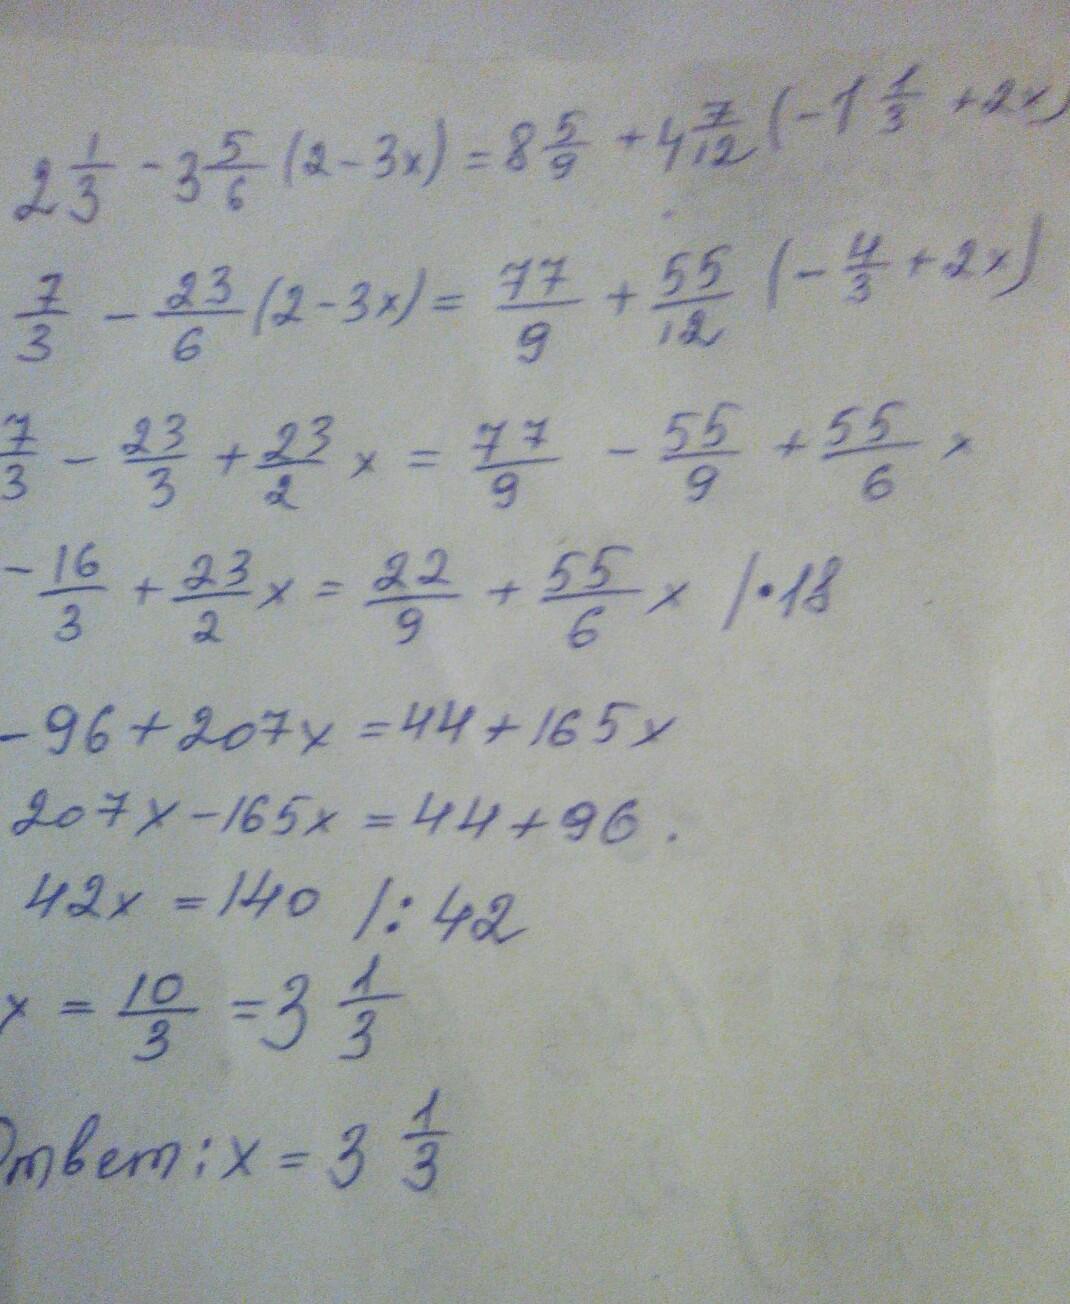 2 1/3 - 3 5/6 (2 - 3x) = 8 5/9 + 4 7/12 (-1 1/3 + 2x)
7/3 - 23/6 (2 - 3x) = 77/9 + 55/12 (-4/3 + 2x)
7/3 - 23/3 + 23/2 x = 77/9 - 55/9 + 55/6 x
-16/3 + 23/2 x = 22/9 + 55/6 x /·18
-96 + 207x = 44 + 165x
207x - 165x = 44 + 96.
42x = 140 /: 42
x = 10/3 = 3 1/3
Ответ: x = 3 1/3